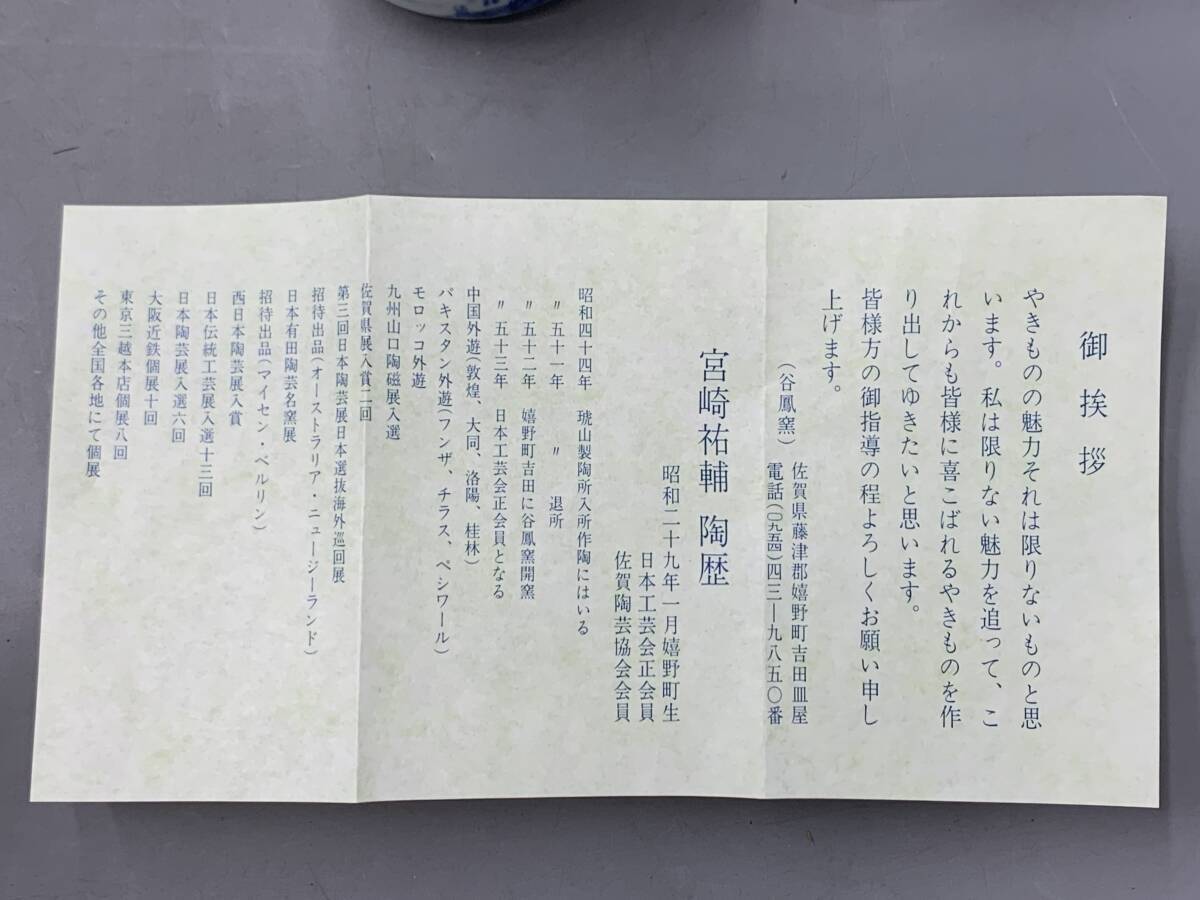 御挨拶
やきものの魅力それは限りないものと思
います。私は限りない魅力を追って、こ
れからも皆様に喜こばれるやきものを作
り出してゆきたいと思います。
皆様方の御指導の程よろしくお願い申し
上げます。
(谷鳳窯) 佐賀県藤津郡嬉野町吉田皿屋
電話(〇九五四)四三―九八五〇番
宮崎祐輔 陶歴
昭和二十九年一月嬉野町生
日本工芸会正会員
佐賀陶芸協会会員
昭和四十四年 琥山製陶所入所作陶にはいる
〃 五十一年 〃 退所
〃 五十二年 嬉野町吉田に谷鳳窯開窯
〃 五十三年 日本工芸会正会員となる
中国外遊(敦煌、大同、洛陽、桂林)
パキスタン外遊(フンザ、チラス、ペシワール)
モロッコ外遊
九州山口陶磁展入選
佐賀県展入賞二回
第三回日本陶芸展日本選抜海外巡回展
招待出品(オーストラリア・ニュージーランド)
日本有田陶芸名窯展
招待出品(マイセン・ベルリン)
西日本陶芸展入賞
日本伝統工芸展入選十三回
日本陶芸展入選六回
大阪近鉄個展十回
東京三越本店個展八回
その他全国各地にて個展